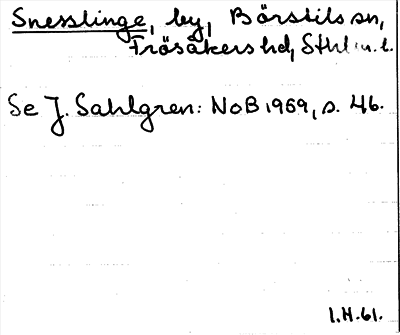 Snesslinge, by, Börstils sn,
Frösåkers hd, Sthl u. l.
Se J. Sahlgren: NoB 1969, s. 46.
I.H.61.